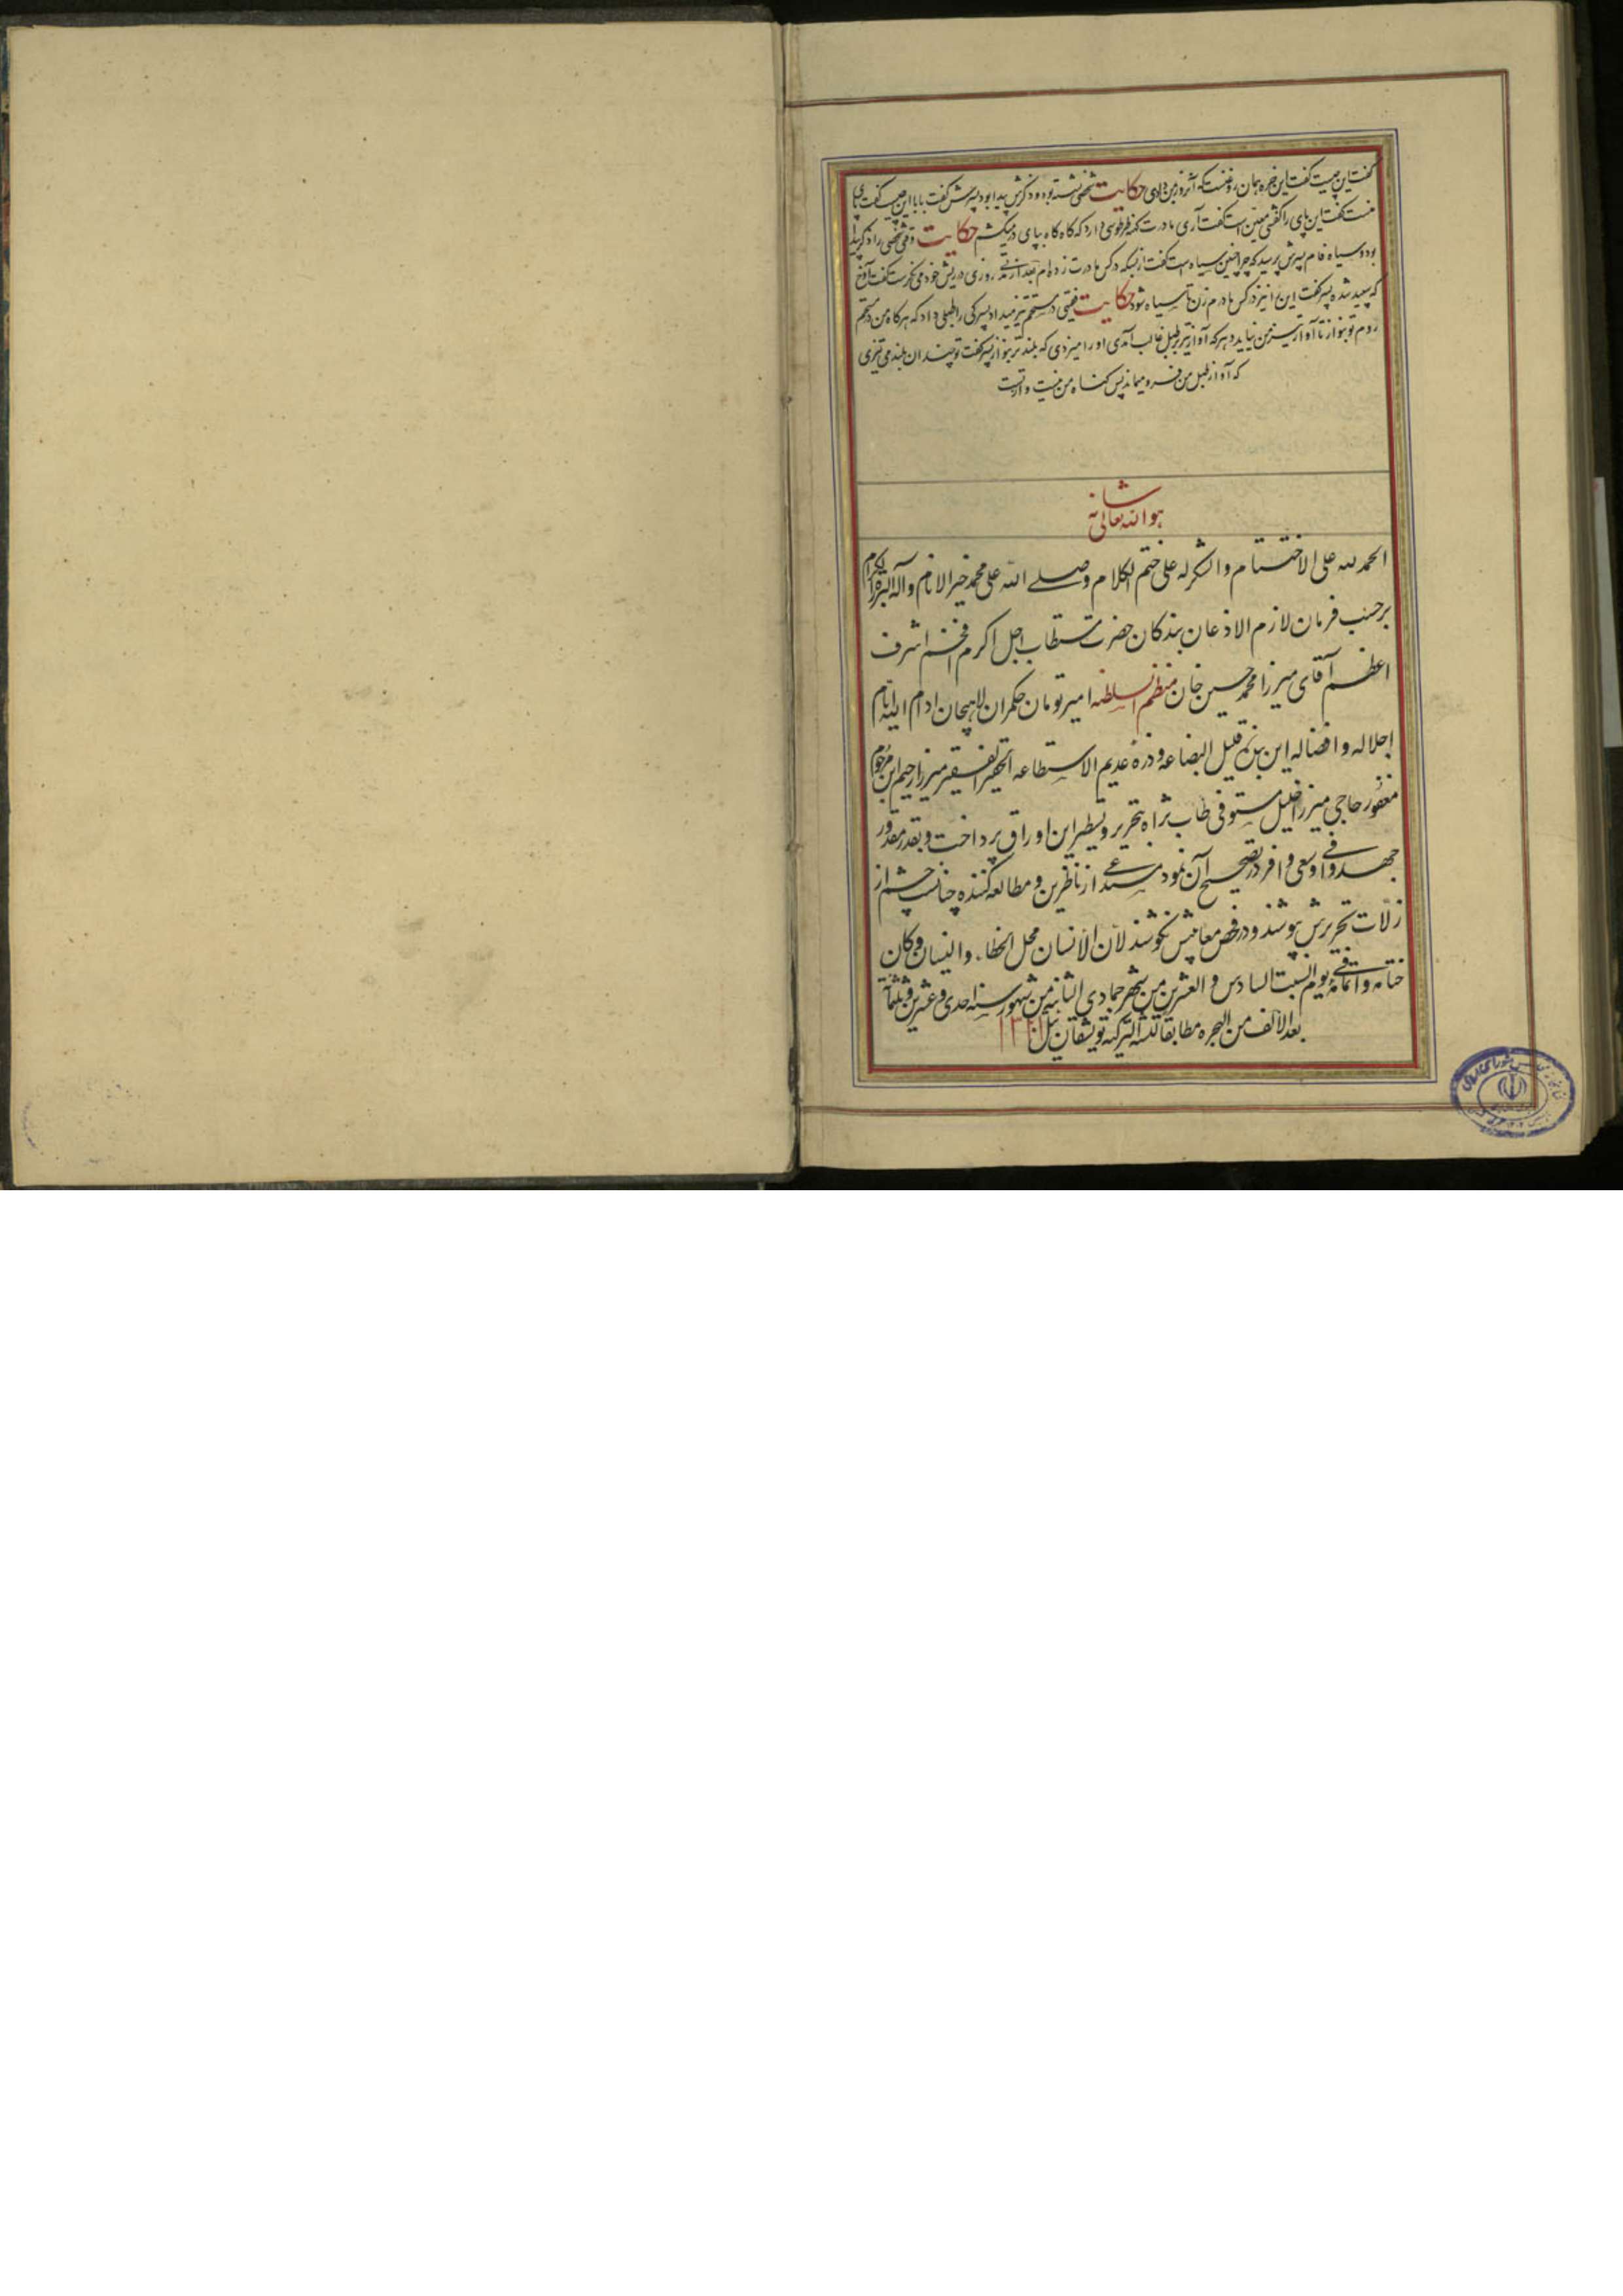 گفت این چیست گفت این خیره همان روغنست که آنروز بمن دادی حکایت شخصی نشسته بود و ذکرش پیدا بود پسرش گفت بابا این چیست گفت پای
منست گفت این پای را کفشی معین است گفت آری مادرت کهنه قرطوسی دارد که گاه گاه بپای در میکشم حکایت وقتی شخصی را ذکر پلید
بود و سیاه فام پسرش پرسید که چرا چنین سیاه است گفت از بسکه در کس مادرت زده‌ام بعد از مدتی روزی در ریش خود می نگریست گفت آوخ
که سپید شده پسر گفت این را نیز در کس مادرم زن تا سیاه شود حکایت فقیهی در مستحم تیز میداد پسرکی را طبلی داد که هرگاه من در مستحم
روم تو بنواز تا آواز تیز من نیاید و هرگه آواز تیز بر طبل غالب آمدی او را میزدی که بلندتر بنواز پسر گفت تو چندان بلند می تیزی
که آواز طبل من فرو میماند پس گناه من نیست و از تست
هو الله تعالی شانه
الحمد لله علی الاختتام والشکر له علی ختم الکلام وصلی الله علی محمد خیر الانام وآله البررة الکرام
برحسب فرمان لازم الاذعان بندگان حضرت مستطاب اجل اکرم افخم اشرف
اعظم آقای میرزا محمد حسین خان منظم السلطنه امیر تومان حکمران لاهیجان ادام الله ایام
اجلاله وافضاله این بنده قلیل البضاعه و ذره عدیم الاستطاعه الحقیر الفقیر میرزا رحیم ابن مرحوم
مغفور حاجی میرزا خلیل مستوفی طاب ثراه بتحریر و تسطیر این اوراق پرداخت و بقدر مقدور
جهد وافی و سعی وافر در تصحیح آن نمود مستدعی از ناظرین و مطالعه کننده چنانست چشم از
زلات تحریرش بپوشند و در فحص معایبش نکوشند لان الانسان محل الخطاء والنسیان وکان
ختامه واتمامه فی یوم السبت السادس والعشرین من شهر جمادی الثانیه من شهور سنه احدی وعشرین وثلثمأة
بعد الالف من الهجره مطابقا لسنه الترکیه توشقان ئیل ۱۳۲۱